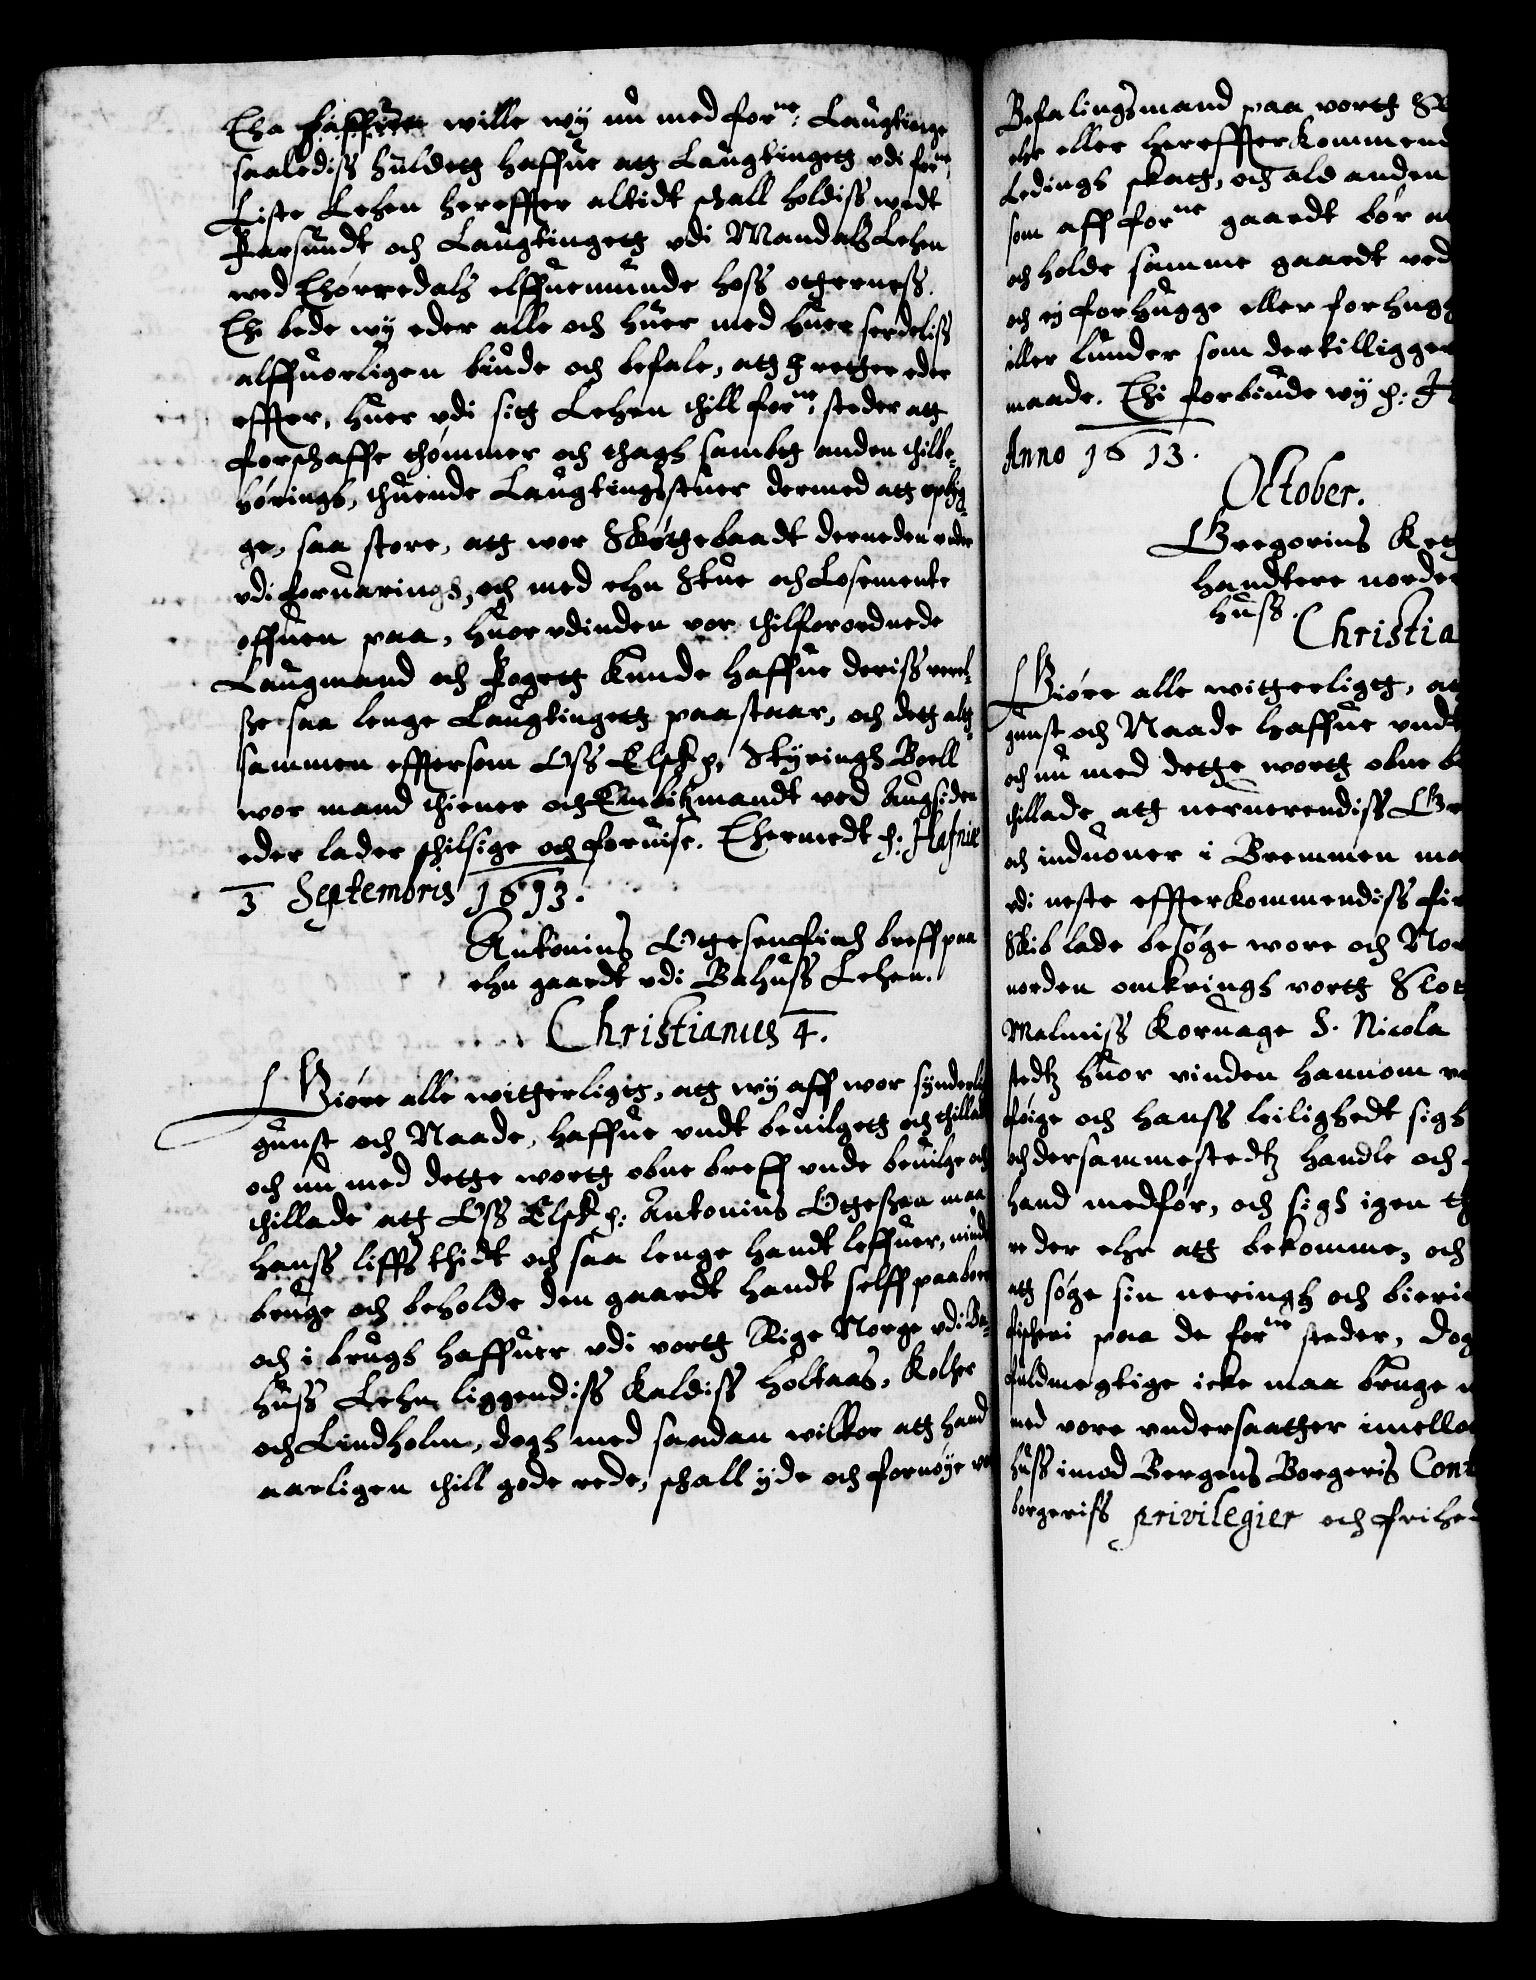 Tha haffue wille wy nu med forne: Laugtinge
saalediss huldetg haffue atg Laugtingetg vdi forne
Liste Lehen hereffter altidt schall holdiss wedt
Farsundt och Laugtingetg vdi Mandals Lehen
wed Thorredals elffuemunde hoss otgerness.
Thi bede wy eder alle och huer med huer serdeliss
alffuorligen biude och befale, atg I retger eder
effter, huer vdi sitg Lehen thill forne: steder atg
forschaffe thommer och thagh sambtg anden thilbe-
høringh, thuende Laugtingsstuer dermed atg opbyg-
ge, saa store, atg wor Skøtgebaadt derneden vnder
vdi foruaringh, och med ehn Stue och Losemente
offuen paa, huor vdinden vor thilforordnede
Laugmand och Fogetg kunde haffue deriss verel-
se saa lenge Laugtingetg paastaar, och detg altg-
sammen efftersom Oss Elsk: p. Styringh Boell
wor mand thiener och Embitzmandt ved Augsiden
eder lader thilsige och foruise. Thermedt p: Hafniæ
3 Septembris 1613.
Antonius Otgesen fich breff paa
ehn gaardt vdi Bahuss Lehen.
Christianus 4.
Giøre alle witgerligtg, atg wy aff wor synderlig
gunst och Naade, haffue vndt beuilgetg och thilladt
och nu med detge wortg obne breff vnde beuilge och
thillade atg Oss Elsk p: Antonius Otgesen maa
hanss liffs thidt och saa lenge handt leffuer, niude
bruge och beholde den gaardt handt selff paaboer
och i brugh haffuer vdi vortg Rige Norge vdi Ba-
huss Lehn liggendiss kaldiss Holtaas, Kolher
och Lindholm, dogh med saadan wilkor atg hand
aarligen thill gode rede, schall yde och fornøye vor
Befalingsmand paa vortg Sl
ehr eller hereffter kommend
Ledingh skatg, och ald anden
som aff forne gaardt bør a
och holde samme gaardt ved
och ej forhugge eller forhugg
eller lunder som dertilligger
maade. Thi forbiude wy p: H
Anno 1613.
October.
Gregorius Ketg
handtere norden
huss.
Christia
Giøre alle witgerligtg, at
gunst och Naade haffue vndt
och nu med detge wortg obne b
thillade atg nerverendiss Gr
och induoner i Bremmen ma
vdi neste effterkommendiss fir
Skib lade besøge wore och No
norden omkringh vortg Slot
Malmiss Koruage S. Nicola
stedtz huor vinden hannom v
føige och hanss leilighedt sigh
och dersammestedtz handle och
hand medfør, och sigh igen th
reder ehr atg bekomme, och
atg søge sin neringh och bieri
fischeri paa de forne steder, Dog
fuldmegtige icke maa bruge
med vore vndersaatger imello
huss imod Bergens Borgeris Cont
borgeriss privilegier och frihe